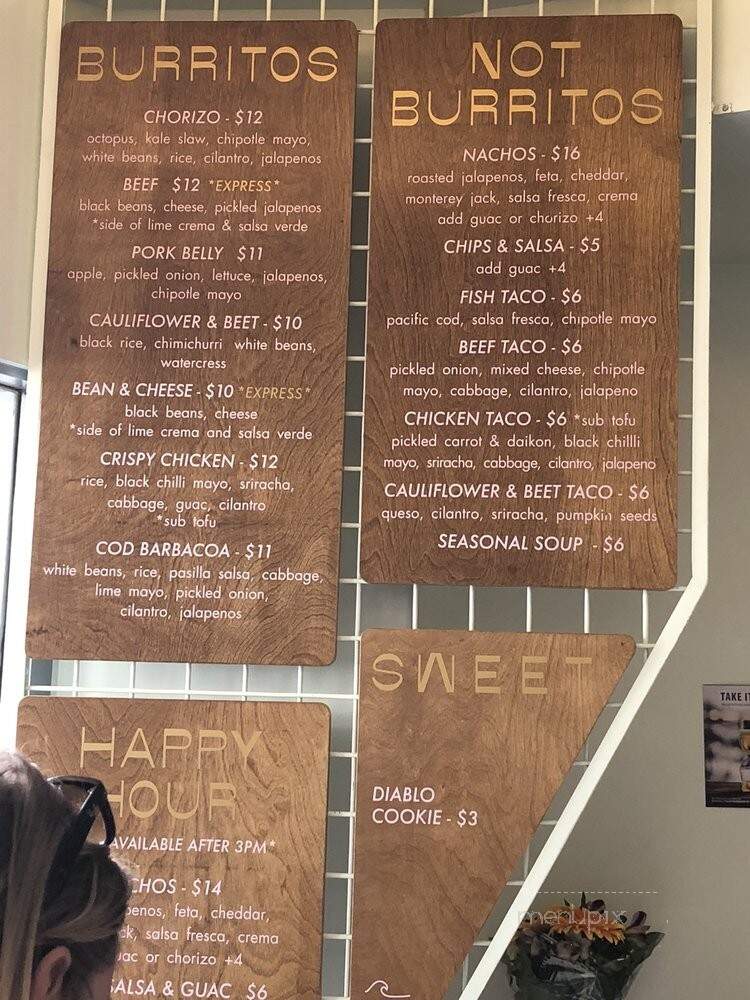 BURRITOS
CHORIZO - $12
octopus, kale slaw, chipotle mayo,
white beans, rice, cilantro, jalapenos
BEEF $12 *EXPRESS*
black beans, cheese, pickled jalapenos
*side of lime crema & salsa verde
PORK BELLY $11
apple, pickled onion, lettuce, jalapenos,
chipotle mayo
CAULIFLOWER & BEET - $10
black rice, chimichurri white beans,
watercress
BEAN & CHEESE - $10 *EXPRESS*
black beans, cheese
*side of lime crema and salsa verde
CRISPY CHICKEN - $12
rice, black chilli mayo, sriracha,
cabbage, guac, cilantro
*sub tofu
COD BARBACOA - $11
white beans, rice, pasilla salsa, cabbage,
lime mayo, pickled onion,
cilantro, jalapenos
NOT
BURRITOS
NACHOS - $16
roasted jalapenos, feta, cheddar,
monterey jack, salsa fresca, crema
add guac or chorizo +4
CHIPS & SALSA - $5
add guac +4
FISH TACO - $6
pacific cod, salsa fresca, chipotle mayo
BEEF TACO - $6
pickled onion, mixed cheese, chipotle
mayo, cabbage, cilantro, jalapeno
CHICKEN TACO - $6 *sub tofu
pickled carrot & daikon, black chillli
mayo, sriracha, cabbage, cilantro, jalapeno
CAULIFLOWER & BEET TACO - $6
queso, cilantro, sriracha, pumpkin seeds
SEASONAL SOUP - $6
SWEET
DIABLO
COOKIE - $3
HAPPY
HOUR
AVAILABLE AFTER 3PM*
CHOS - $14
penos, feta, cheddar,
ck, salsa fresca, crema
uac or chorizo +4
SALSA & GUAC $6
TAKE IT
menupix